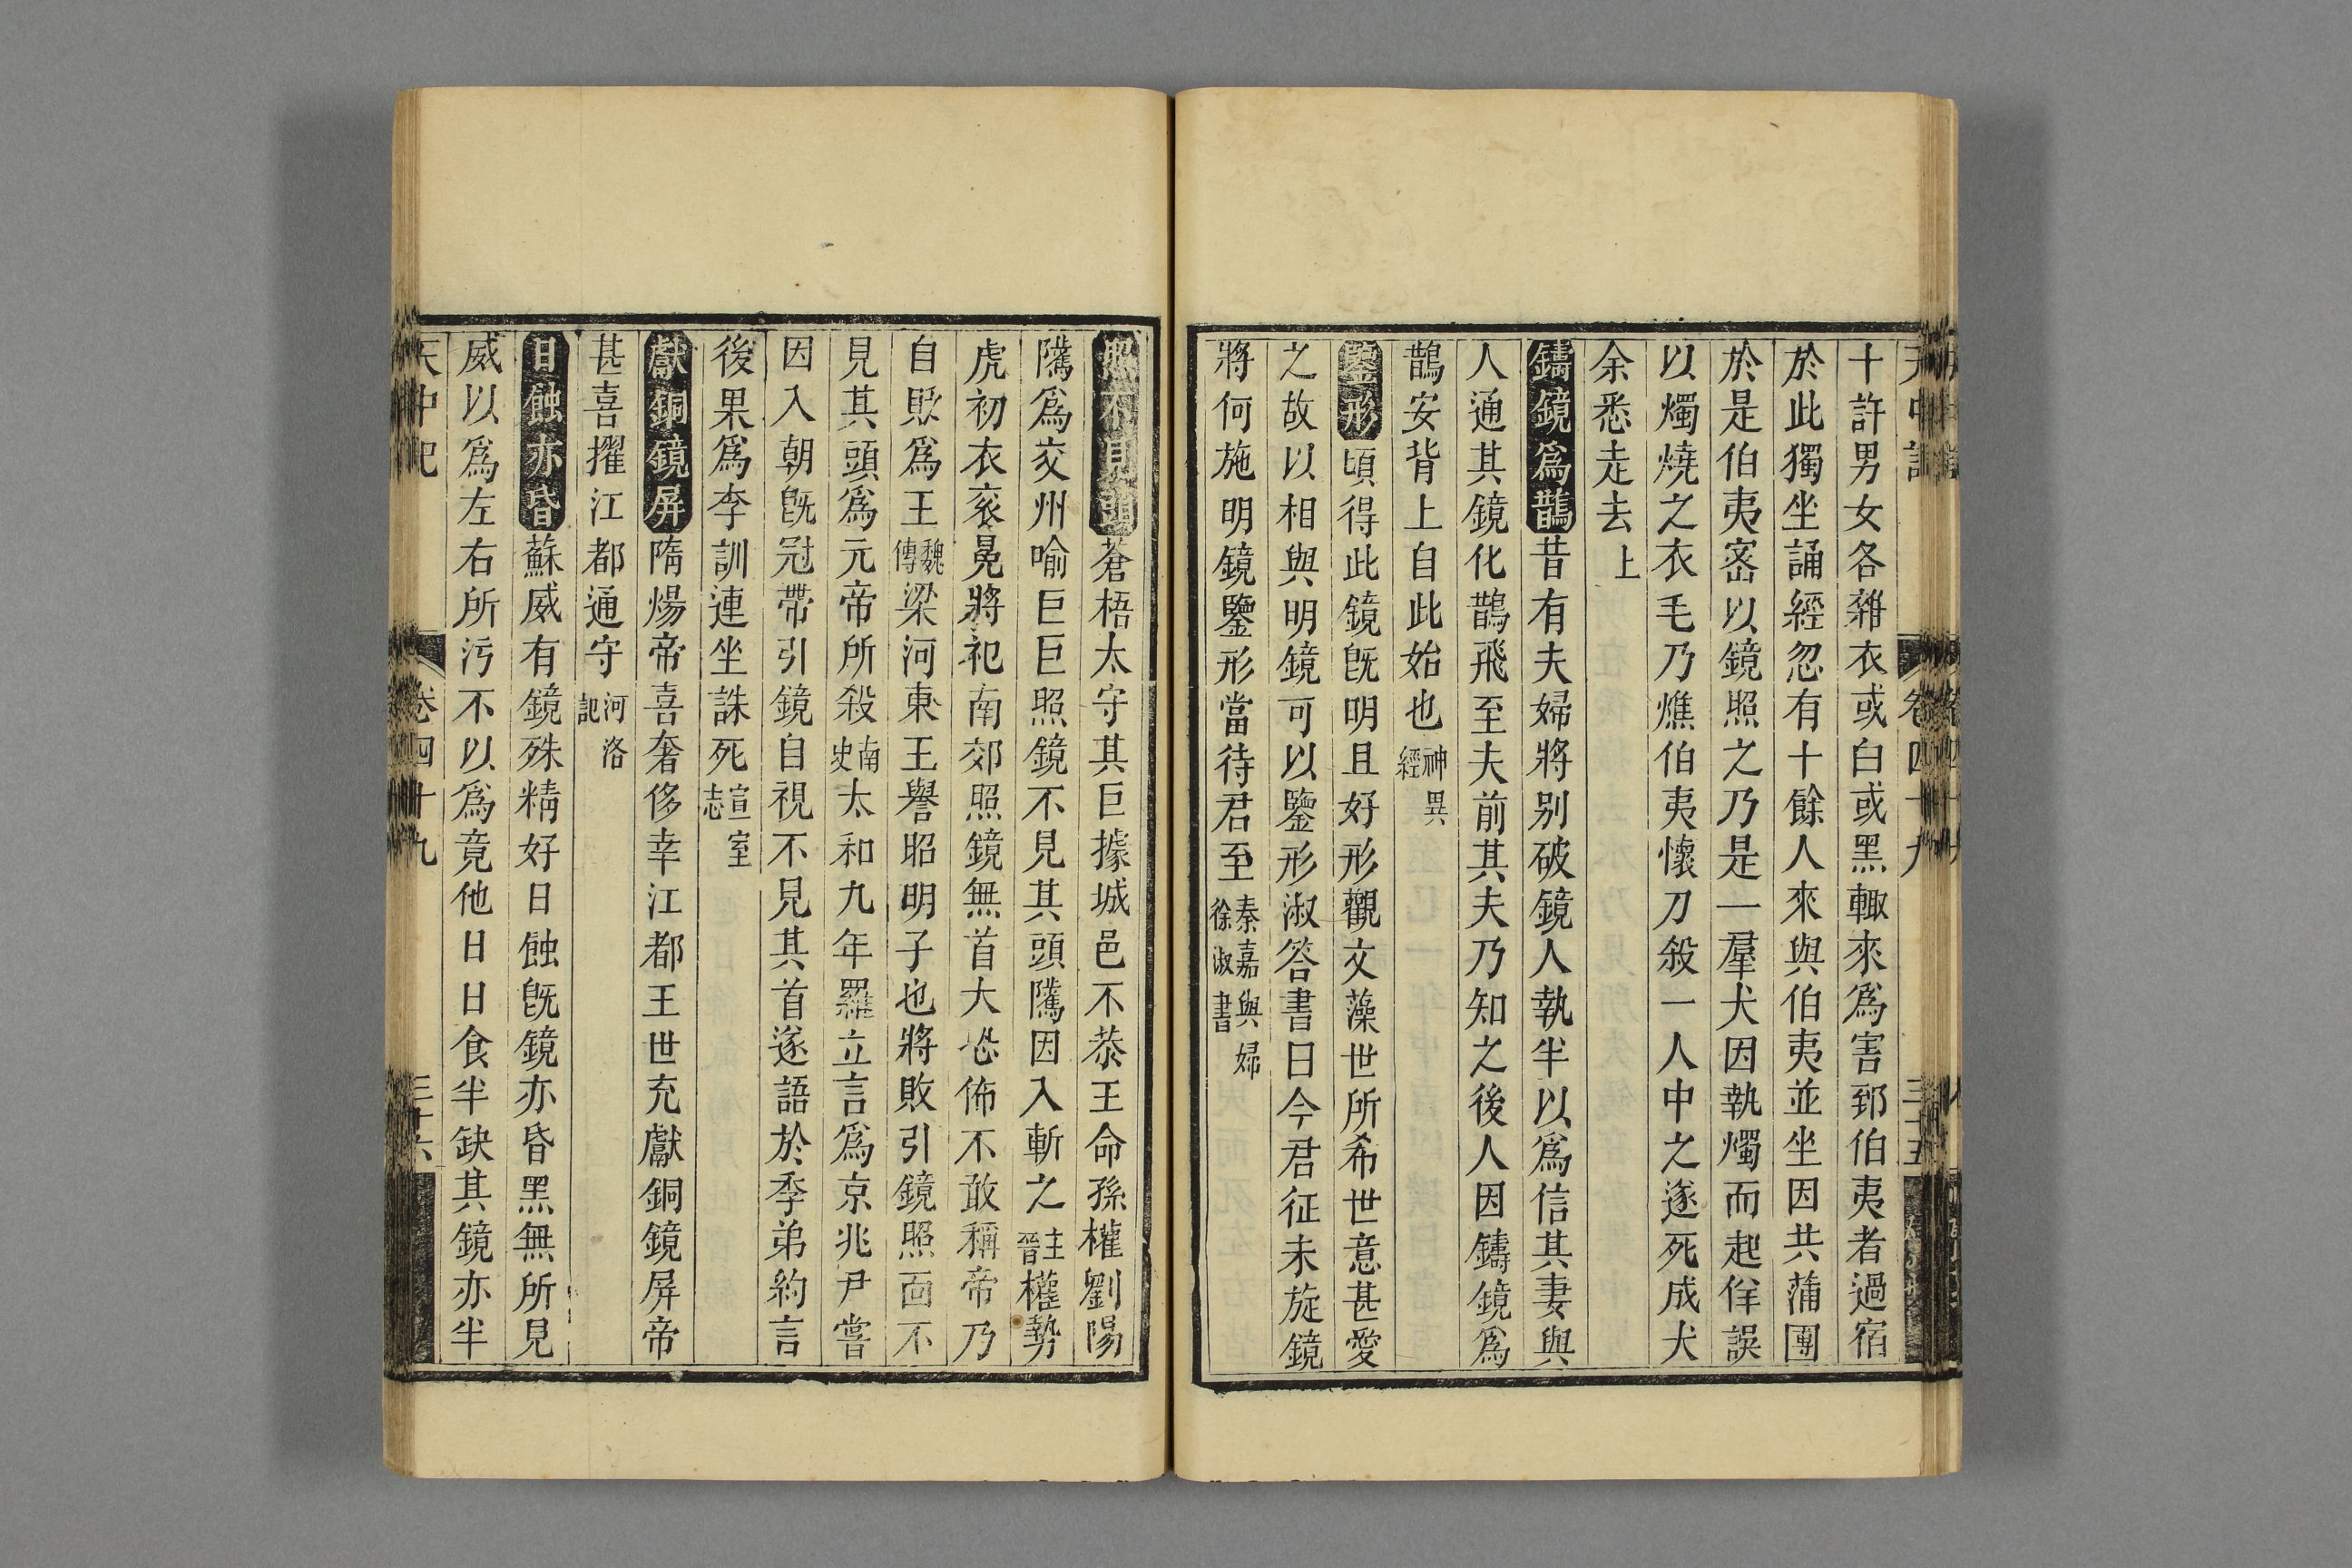 天中記 卷四十九 三十五
十許男女各雜衣或白或黑輙來爲害郅伯夷者過宿
於此獨坐誦經忽有十餘人來與伯夷並坐因共蒲團
於是伯夷宻以鏡照之乃是一羣犬因執燭而起佯誤
以燭燒之衣毛乃燋伯夷懷刀殺一人中之遂死成犬
余悉走去上
鑄鏡爲鵲昔有夫婦將别破鏡人執半以爲信其妻與
人通其鏡化鵲飛至夫前其夫乃知之後人因鑄鏡爲
鵲安背上自此始也神異經
鑒形頃得此鏡旣明且好形觀文藻世所希世意甚愛
之故以相與明鏡可以鑒形淑答書曰今君征未旋鏡
將何施明鏡鑒形當待君至秦嘉與婦徐淑書
照不見頭蒼梧太守其巨據城邑不恭王命孫權劉陽
隲爲交州喻巨巨照鏡不見其頭隲因入斬之王晉權勢
虎初衣衮冕將祀南郊照鏡無首大恐怖不敢稱帝乃
自貶爲王魏傳梁河東王譽昭明子也將敗引鏡照面不
見其頭爲元帝所殺南史太和九年羅立言爲京兆尹嘗
因入朝旣冠帶引鏡自視不見其首遂語於季弟約言
後果爲李訓連坐誅死宣室志
獻銅鏡屏隋煬帝喜奢侈幸江都王世充獻銅鏡屏帝
甚喜擢江都通守河洛記
日蝕亦昏蘇威有鏡殊精好日蝕旣鏡亦昏黑無所見
威以爲左右所污不以爲竟他日日食半缺其鏡亦半
天中記 卷四十九 三十六